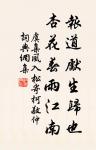 報道先生歸也
杏花春雨江南
虞集風入松寄柯敬仲
詞典網集